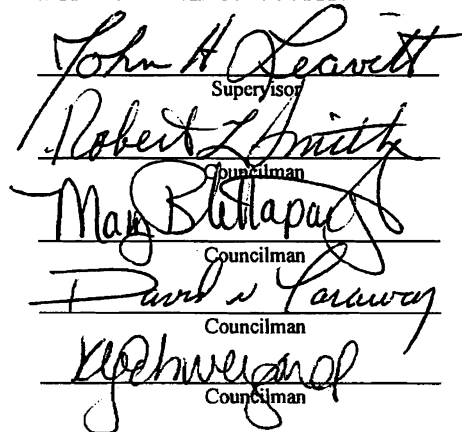 John H Leavitt
Supervisor
Robert L Smith
Councilman
Mary B
Councilman
David N Caraway
Councilman
Councilman